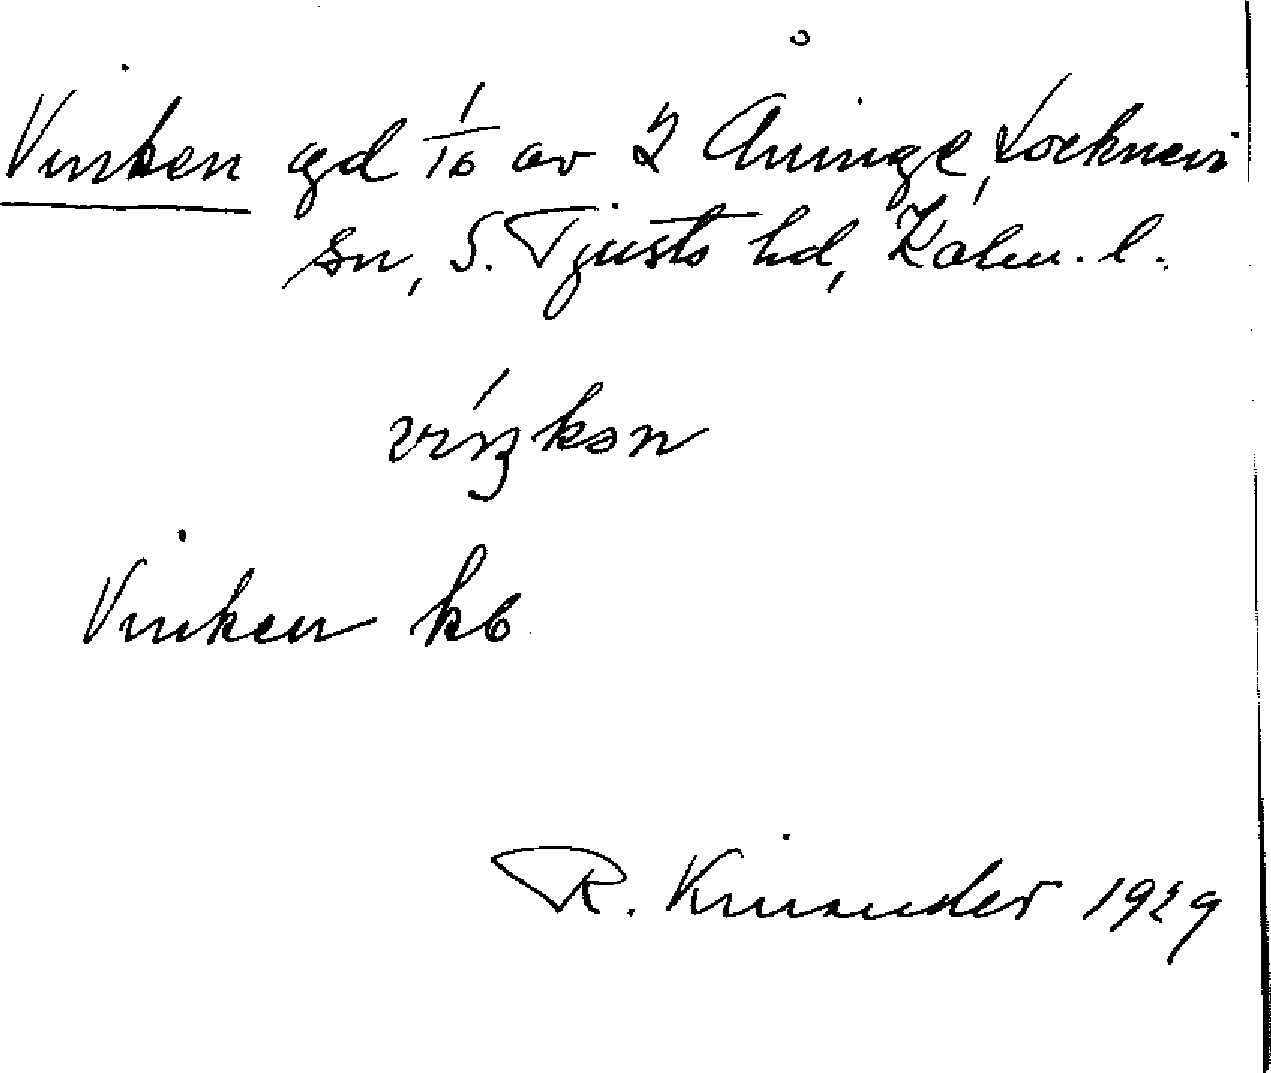 Vinken gd 1/16 av 2 Åninge, Locknevi
sn, S. Tjusts hd, Kalm. l.
víŋkən
Vinken kb
R. Kinander 1929